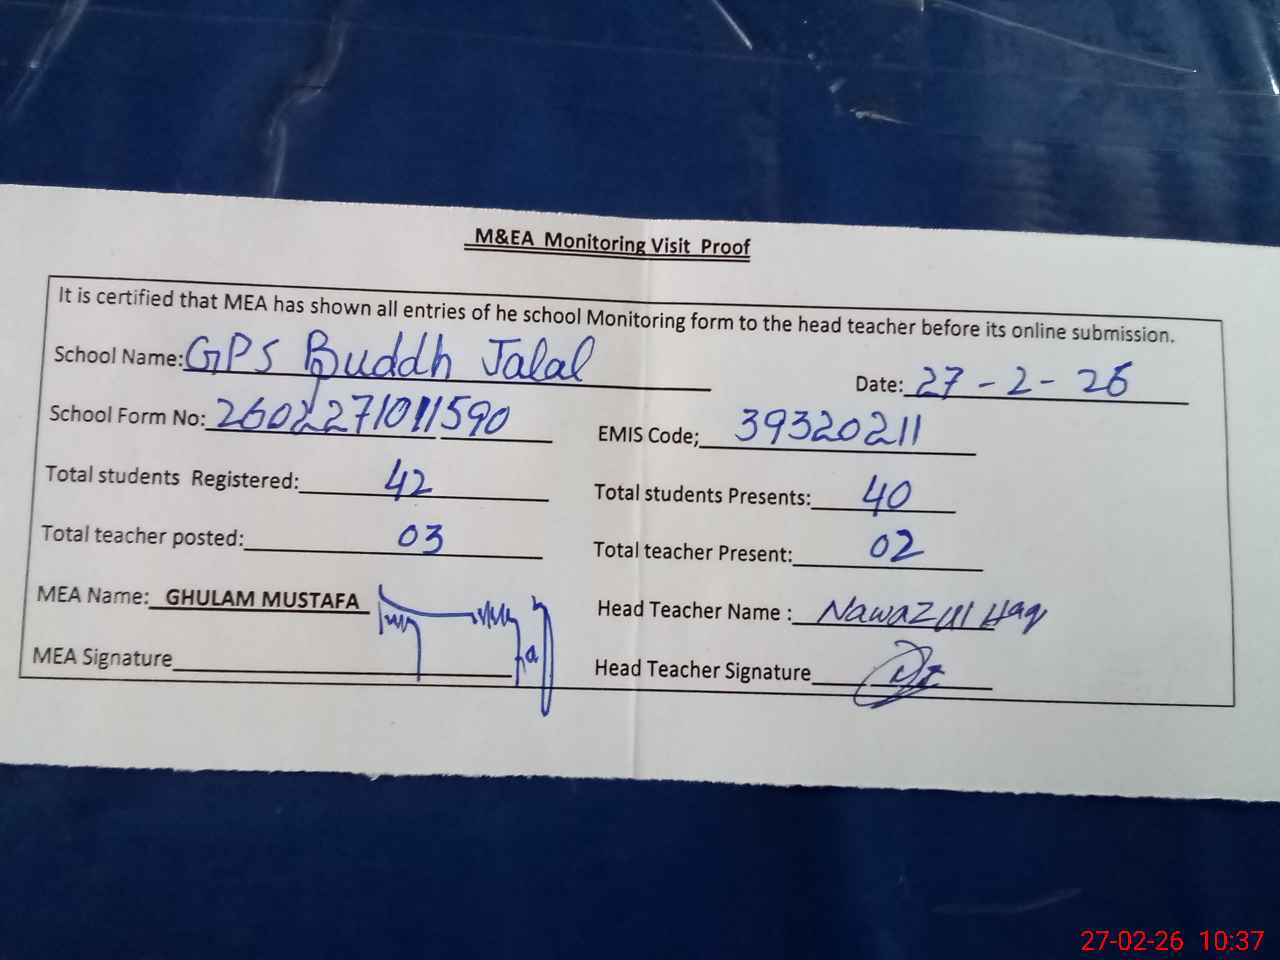 M&EA Monitoring Visit Proof
It is certified that MEA has shown all entries of he school Monitoring form to the head teacher before its online submission.
School Name: GPS Buddh Jalal Date: 27-2-26
School Form No: 2602271011590 EMIS Code; 39320211
Total students Registered: 42 Total students Presents: 40
Total teacher posted: 03 Total teacher Present: 02
MEA Name: GHULAM MUSTAFA Head Teacher Name : Nawaz ul Haq
MEA Signature Head Teacher Signature
27-02-26 10:37